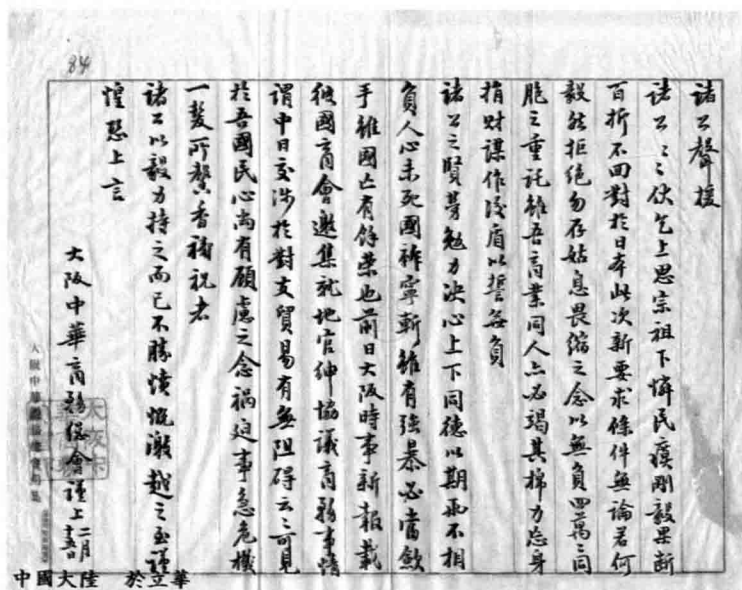 84
諸公聲援
諸公〻伏乞上思宗祖下憐民瘼剛毅果断
百折不回對於日本此次新要求條件無論若何
毅然拒絕勿存姑息畏縮之念以無負四萬〻同
胞之重託雖吾商業同人亦必竭其棉力忘身
捐財謀作後盾以誓無負
諸公之賢勞勉力决心上下同德以期永不相
負人心未死國祚寧斬雖有強暴必當歛
手雖國亡有餘榮也前日大阪時事新報載
彼國商會邀集就地官紳協議商務事情
謂中日交涉於對支貿易有無阻碍云〻可見
於吾國民心尚有顧慮之念禍迫事急危機
一髮所馨香禱祝者
諸公以毅力持之而已不勝憤慨激越之至謹
惶恐上言
大阪中華商務總會謹上 二月
中國大陸 於立華